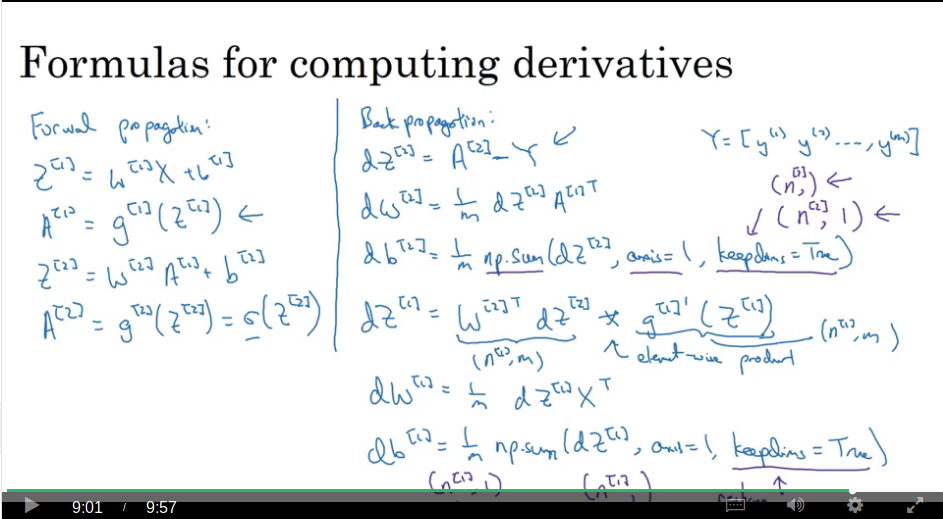 Formulas for computing derivatives
Forward propagation:
Z^[1] = W^[1]X + b^[1]
A^[1] = g^[1](Z^[1]) ←
Z^[2] = W^[2] A^[1] + b^[2]
A^[2] = g^[2](Z^[2]) = σ(Z^[2])
Back propagation:
dZ^[2] = A^[2] - Y
dW^[2] = 1/m dZ^[2] A^[1]T
db^[2] = 1/m np.sum(dZ^[2], axis=1, keepdims=True)
dZ^[1] = W^[2]T dZ^[2] * g^[1]'(Z^[1])
(n^[1], m)
element-wise product
(n^[1], m)
dW^[1] = 1/m dZ^[1] X^T
db^[1] = 1/m np.sum(dZ^[1], axis=1, keepdims=True)
(n^[1], 1) (n^[1],)
Y = [y^(1) y^(2) ..., y^(m)]
(n^[2],) ←
(n^[2], 1) ←
9:01 / 9:57